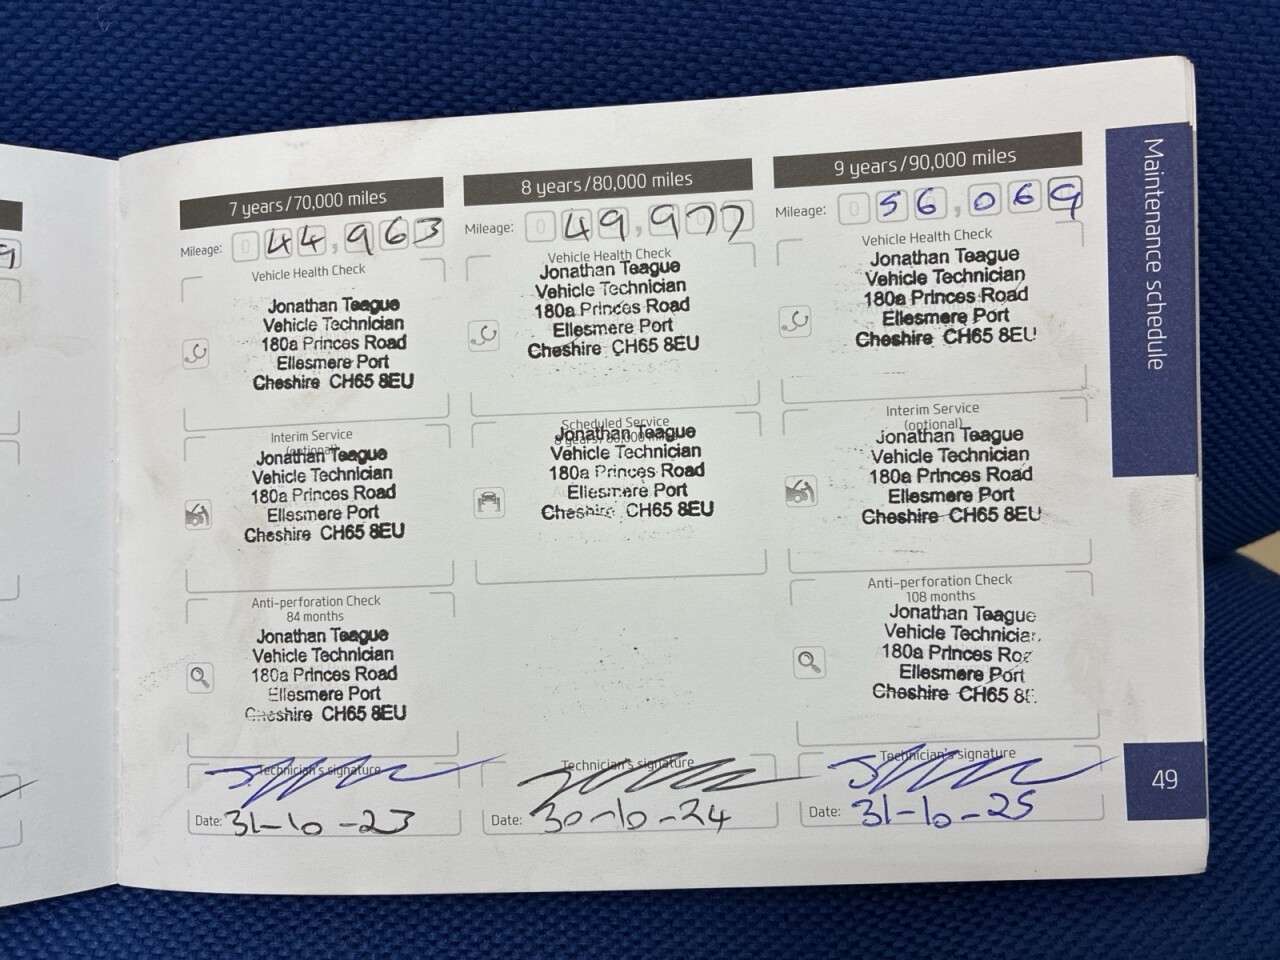 9
7 years/70,000 miles
Mileage: 044,963
Vehicle Health Check
Jonathan Teague
Vehicle Technician
180a Princes Road
Ellesmere Port
Cheshire CH65 8EU
Interim Service
(optional)
Jonathan Teague
Vehicle Technician
180a Princes Road
Ellesmere Port
Cheshire CH65 8EU
Anti-perforation Check
84 months
Jonathan Teague
Vehicle Technician
180a Princes Road
Ellesmere Port
Cheshire CH65 8EU
Technician's signature
Date: 31-10-23
8 years/80,000 miles
Mileage: 049,977
Vehicle Health Check
Jonathan Teague
Vehicle Technician
180a Princes Road
Ellesmere Port
Cheshire CH65 8EU
Scheduled Service
8 years/80,000 miles
Jonathan Teague
Vehicle Technician
180a Princes Road
Ellesmere Port
Cheshire CH65 8EU
Technician's signature
Date: 30-10-24
9 years/90,000 miles
Mileage: 056,069
Vehicle Health Check
Jonathan Teague
Vehicle Technician
180a Princes Road
Ellesmere Port
Cheshire CH65 8EU
Interim Service
(optional)
Jonathan Teague
Vehicle Technician
180a Princes Road
Ellesmere Port
Cheshire CH65 8EU
Anti-perforation Check
108 months
Jonathan Teague
Vehicle Technician
180a Princes Road
Ellesmere Port
Cheshire CH65 8E
Technician's signature
Date: 31-10-25
Maintenance schedule
49